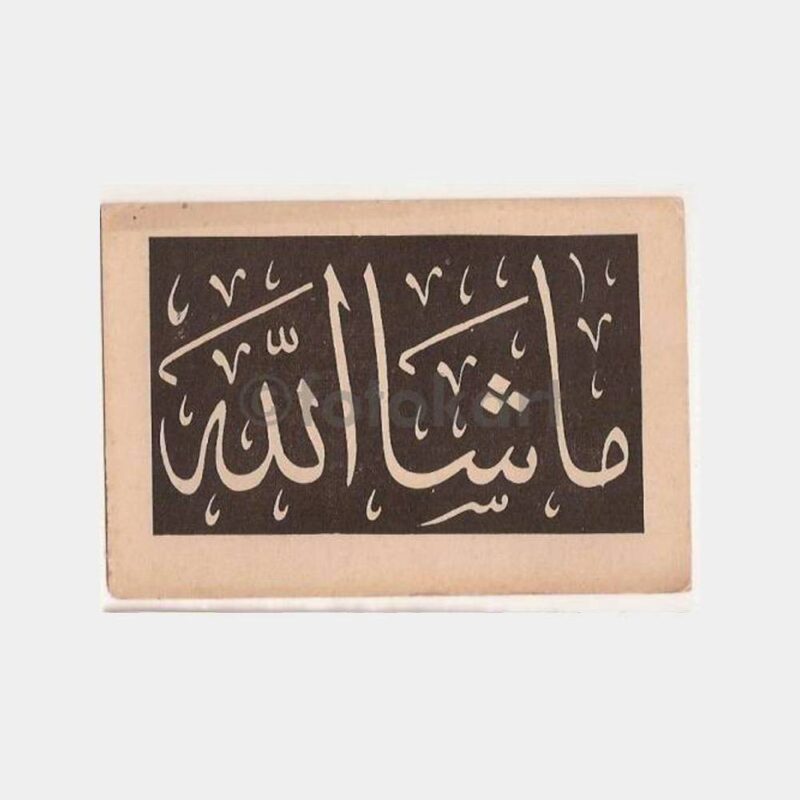 ما شاَ اللّه
©fotokart